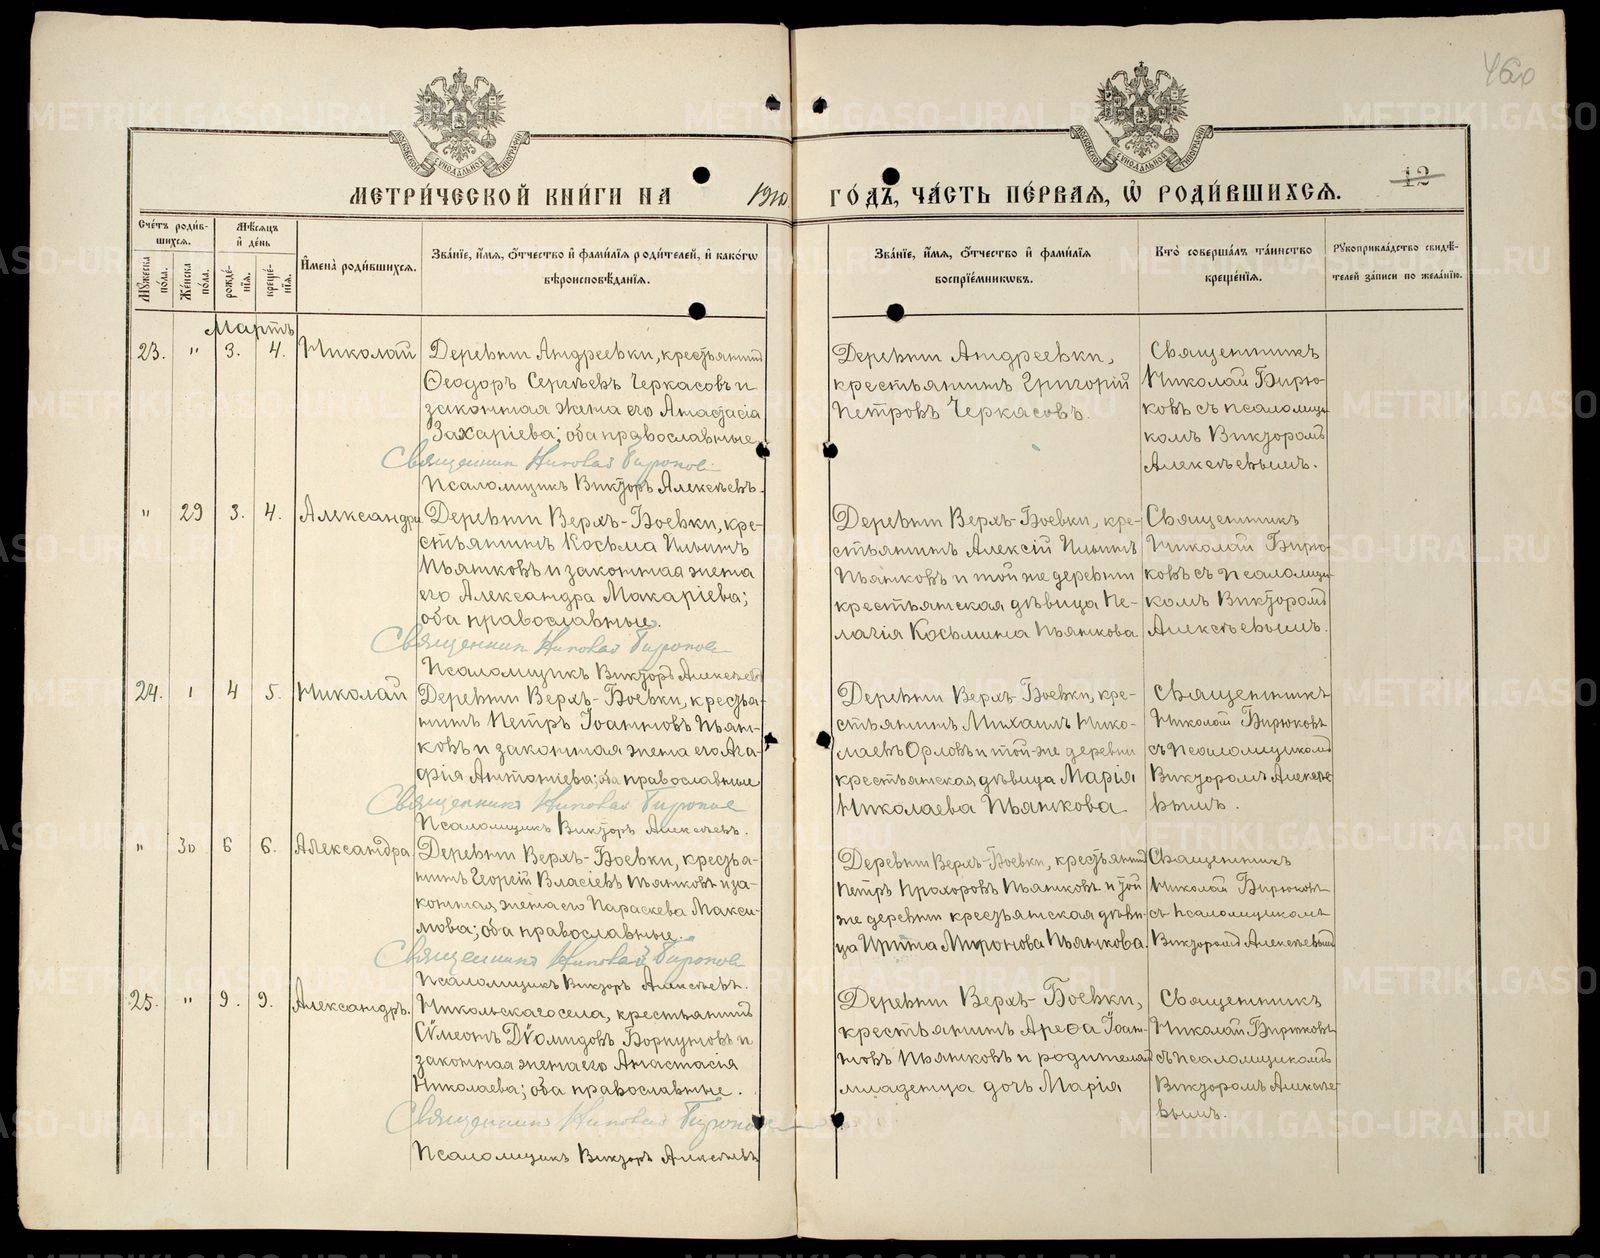 460
МЕТРИ́ЧЕСКОЙ КНИ́ГИ НА 1910 ГО́ДЪ, ЧА́СТЬ ПЕ́РВАЯ, Ѽ РОДИ́ВШИХСЯ.
12
МОСКОВСКОЙ СѴНОДАЛЬНОЙ ТИПОГРАФИИ
МОСКОВСКОЙ СѴНОДАЛЬНОЙ ТИПОГРАФИИ
Сче́тъ роди́в-
шихся.
Мѣ́сяцъ
и҆ де́нь
Му́жеска по́ла.
Же́нска по́ла.
рожде́нїя.
креще́нїя.
И҆мена̀ роди́вшихся.
Зва́нїе, и҆́мя, ѻ҆́тчество и҆ фами́лїя роди́телей, и҆ како́гѡ
вѣроисповѣ́данїя.
Зва́нїе, и҆́мя, ѻ҆́тчество и҆ фами́лїя
воспрїе́мниковъ.
Кто̀ соверша́лъ та́инство
креще́нїя.
Рꙋкоприкла́дство свидѣ́-
телей за́писи по жела́нїю.
Мартъ
23. " 3. 4. Николай
Деревни Андреевки, крестьянинъ
Ѳеодоръ Сергѣевъ Черкасовъ и
законная жена его Анастасія
Захаріева; оба православные
Священник Николай Бирюков
Псаломщикъ Викторъ Алексѣевъ.
Деревни Андреевки,
крестьянинъ Григорій
Петровъ Черкасовъ.
Священникъ
Николай Бирю-
ковъ съ псаломщи-
комъ Викторомъ
Алексѣевымъ.
" 29 3. 4. Александра
Деревни Верхъ-Боевки, кре-
стьянинъ Косьма Ильинъ
Пьянковъ и законная жена
его Александра Макаріева;
оба православные.
Священник Николай Бирюков
Псаломщикъ Викторъ Алексѣевъ
Деревни Верхъ-Боевки, кре-
стьянинъ Алексій Ильинъ
Пьянковъ и той же деревни
крестьянская дѣвица Пе-
лагія Косьмина Пьянкова.
Священникъ
Николай Бирю-
ковъ съ псаломщи-
комъ Викторомъ
Алексѣевымъ.
24. " 4 5. Николай
Деревни Верхъ-Боевки, крестья-
нинъ Петръ Іоанновъ Пьян-
ковъ и законная жена его Ага-
фія Антоніева; оба православные
Священникъ Николай Бирюков
Псаломщикъ Викторъ Алексѣевъ.
Деревни Верхъ-Боевки, кре-
стьянинъ Михаилъ Нико-
лаевъ Орловъ и той-же деревни
крестьянская дѣвица Марія
Николаева Пьянкова
Священникъ
Николай Бирюковъ
съ псаломщикомъ
Викторомъ Алексѣе-
вымъ.
" 30 6 6. Александра
Деревни Верхъ-Боевки, крестья-
нинъ Георгій Власіевъ Пьянковъ и за-
конная жена его Параскева Макси-
мова; оба православные.
Священникъ Николай Бирюков
Псаломщикъ Викторъ Алексѣевъ.
Деревни Верхъ-Боевки, крестьянинъ
Петръ Прохоровъ Пьянковъ и той
же деревни крестьянская дѣви-
ца Ирина Миронова Пьянкова.
Священникъ
Николай Бирюковъ
съ псаломщикомъ
Викторомъ Алексѣевымъ
25. " 9. 9. Александръ.
Никольскаго села, крестьянинъ
Сѷмеонъ Дѷомидовъ Боркуновъ и
законная жена его Анастасія
Николаева; оба православные.
Священникъ Николай Бирюков
Псаломщикъ Викторъ Алексѣевъ
Деревни Верхъ-Боевки,
крестьянинъ Арефа Іоан-
новъ Пьянковъ и родителей
младенца дочь Марія
Священникъ
Николай Бирюковъ
съ псаломщикомъ
Викторомъ Алексѣе-
вымъ.
METRIKI.GASO-URAL.RU